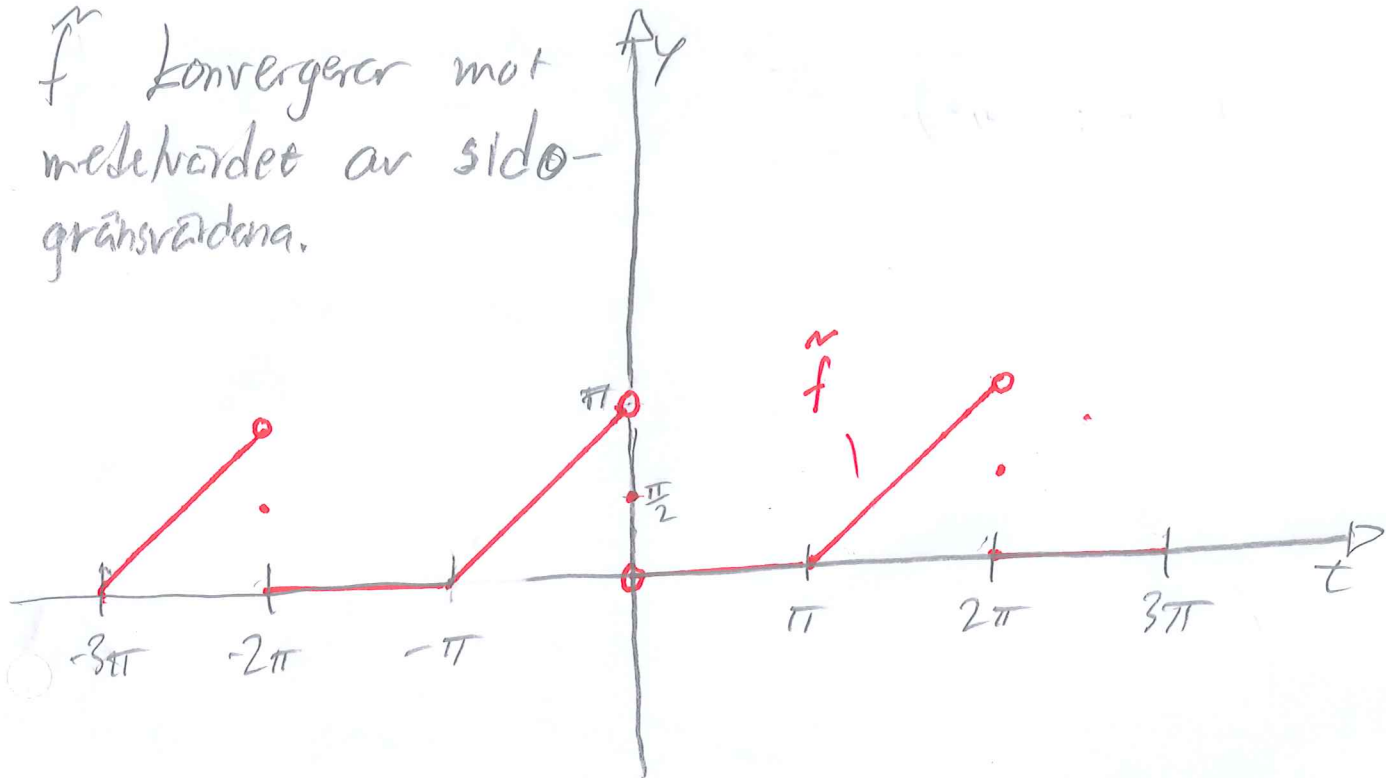 f̃ konvergerar mot
medelvärdet av sido-
gränsvärdena.
y
f̃
π
π/2
-3π -2π -π π 2π 3π t